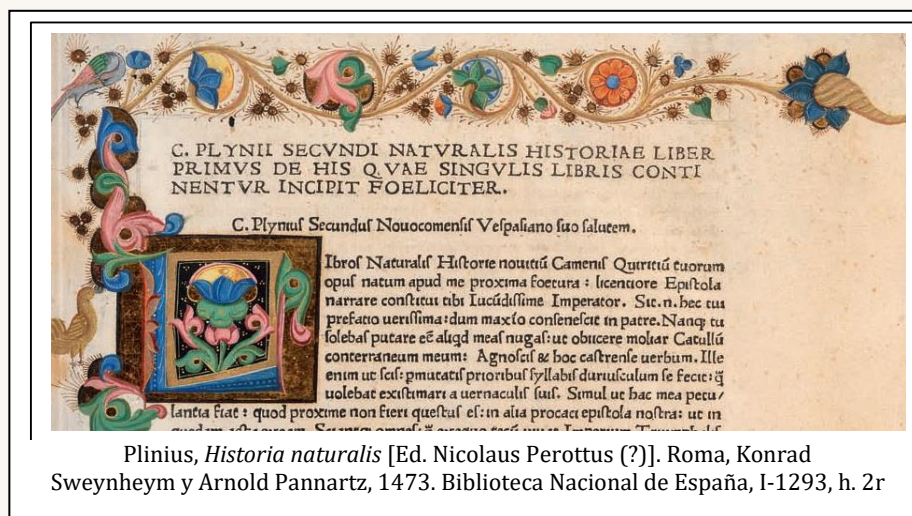 C. PLYNII SECVNDI NATVRALIS HISTORIAE LIBER
PRIMVS DE HIS QVAE SINGVLIS LIBRIS CONTI
NENTVR INCIPIT FOELICITER.
C. Plynius Secundus Nouocomensis Vespasiano suo salutem.
Ibros Naturalis Historie nouitiū Camenis Quiritiū tuorum
opus natum apud me proxima foetura : licentiore Epistola
narrare constitui tibi Iucūdissime Imperator. Sit.n. hec tui
prefatio uerissima: dum maxīo consenescit in patre. Nanq; tu
solebas putare eē aliqd meas nugas: ut obiicere moliar Catullū
conterraneum meum: Agnoscis & hoc castrense uerbum. Ille
enim ut scis: pmutatis prioribus syllabis duriusculum se fecit: q̄
uolebat existimari a uernaculis suis. Simul ut hac mea petu/
lantia fiat : quod proxime non fieri questus es: in alia procaci epistola nostra: ut in
Plinius, Historia naturalis [Ed. Nicolaus Perottus (?)]. Roma, Konrad
Sweynheym y Arnold Pannartz, 1473. Biblioteca Nacional de España, I-1293, h. 2r